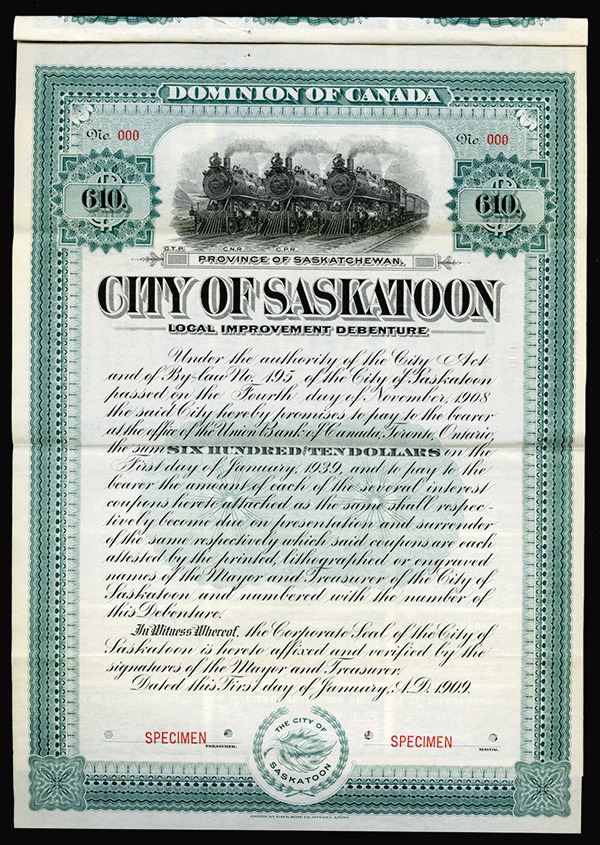 DOMINION OF CANADA
No. 000
No. 000
610.
610.
G.T.P. C.N.R. C.P.R.
PROVINCE OF SASKATCHEWAN.
CITY OF SASKATOON
LOCAL IMPROVEMENT DEBENTURE
Under the authority of the City Act
and of By-law No. 195 of the City of Saskatoon
passed on the Fourth day of November, 1908
the said City hereby promises to pay to the bearer
at the office of the Union Bank of Canada, Toronto, Ontario,
the sum SIX HUNDRED AND TEN DOLLARS on the
First day of January, 1939, and to pay to the
bearer the amount of each of the several interest
coupons hereto attached as the same shall respec-
tively become due on presentation and surrender
of the same respectively which said coupons are each
attested by the printed, lithographed or engraved
names of the Mayor and Treasurer of the City of
Saskatoon and numbered with the number of
this Debenture.
In Witness Whereof, the Corporate Seal of the City of
Saskatoon is hereto affixed and verified by the
signatures of the Mayor and Treasurer.
Dated this First day of January, A.D. 1909.
SPECIMEN TREASURER.
THE CITY OF SASKATOON
SPECIMEN MAYOR.
AMERICAN BANK NOTE CO. OTTAWA